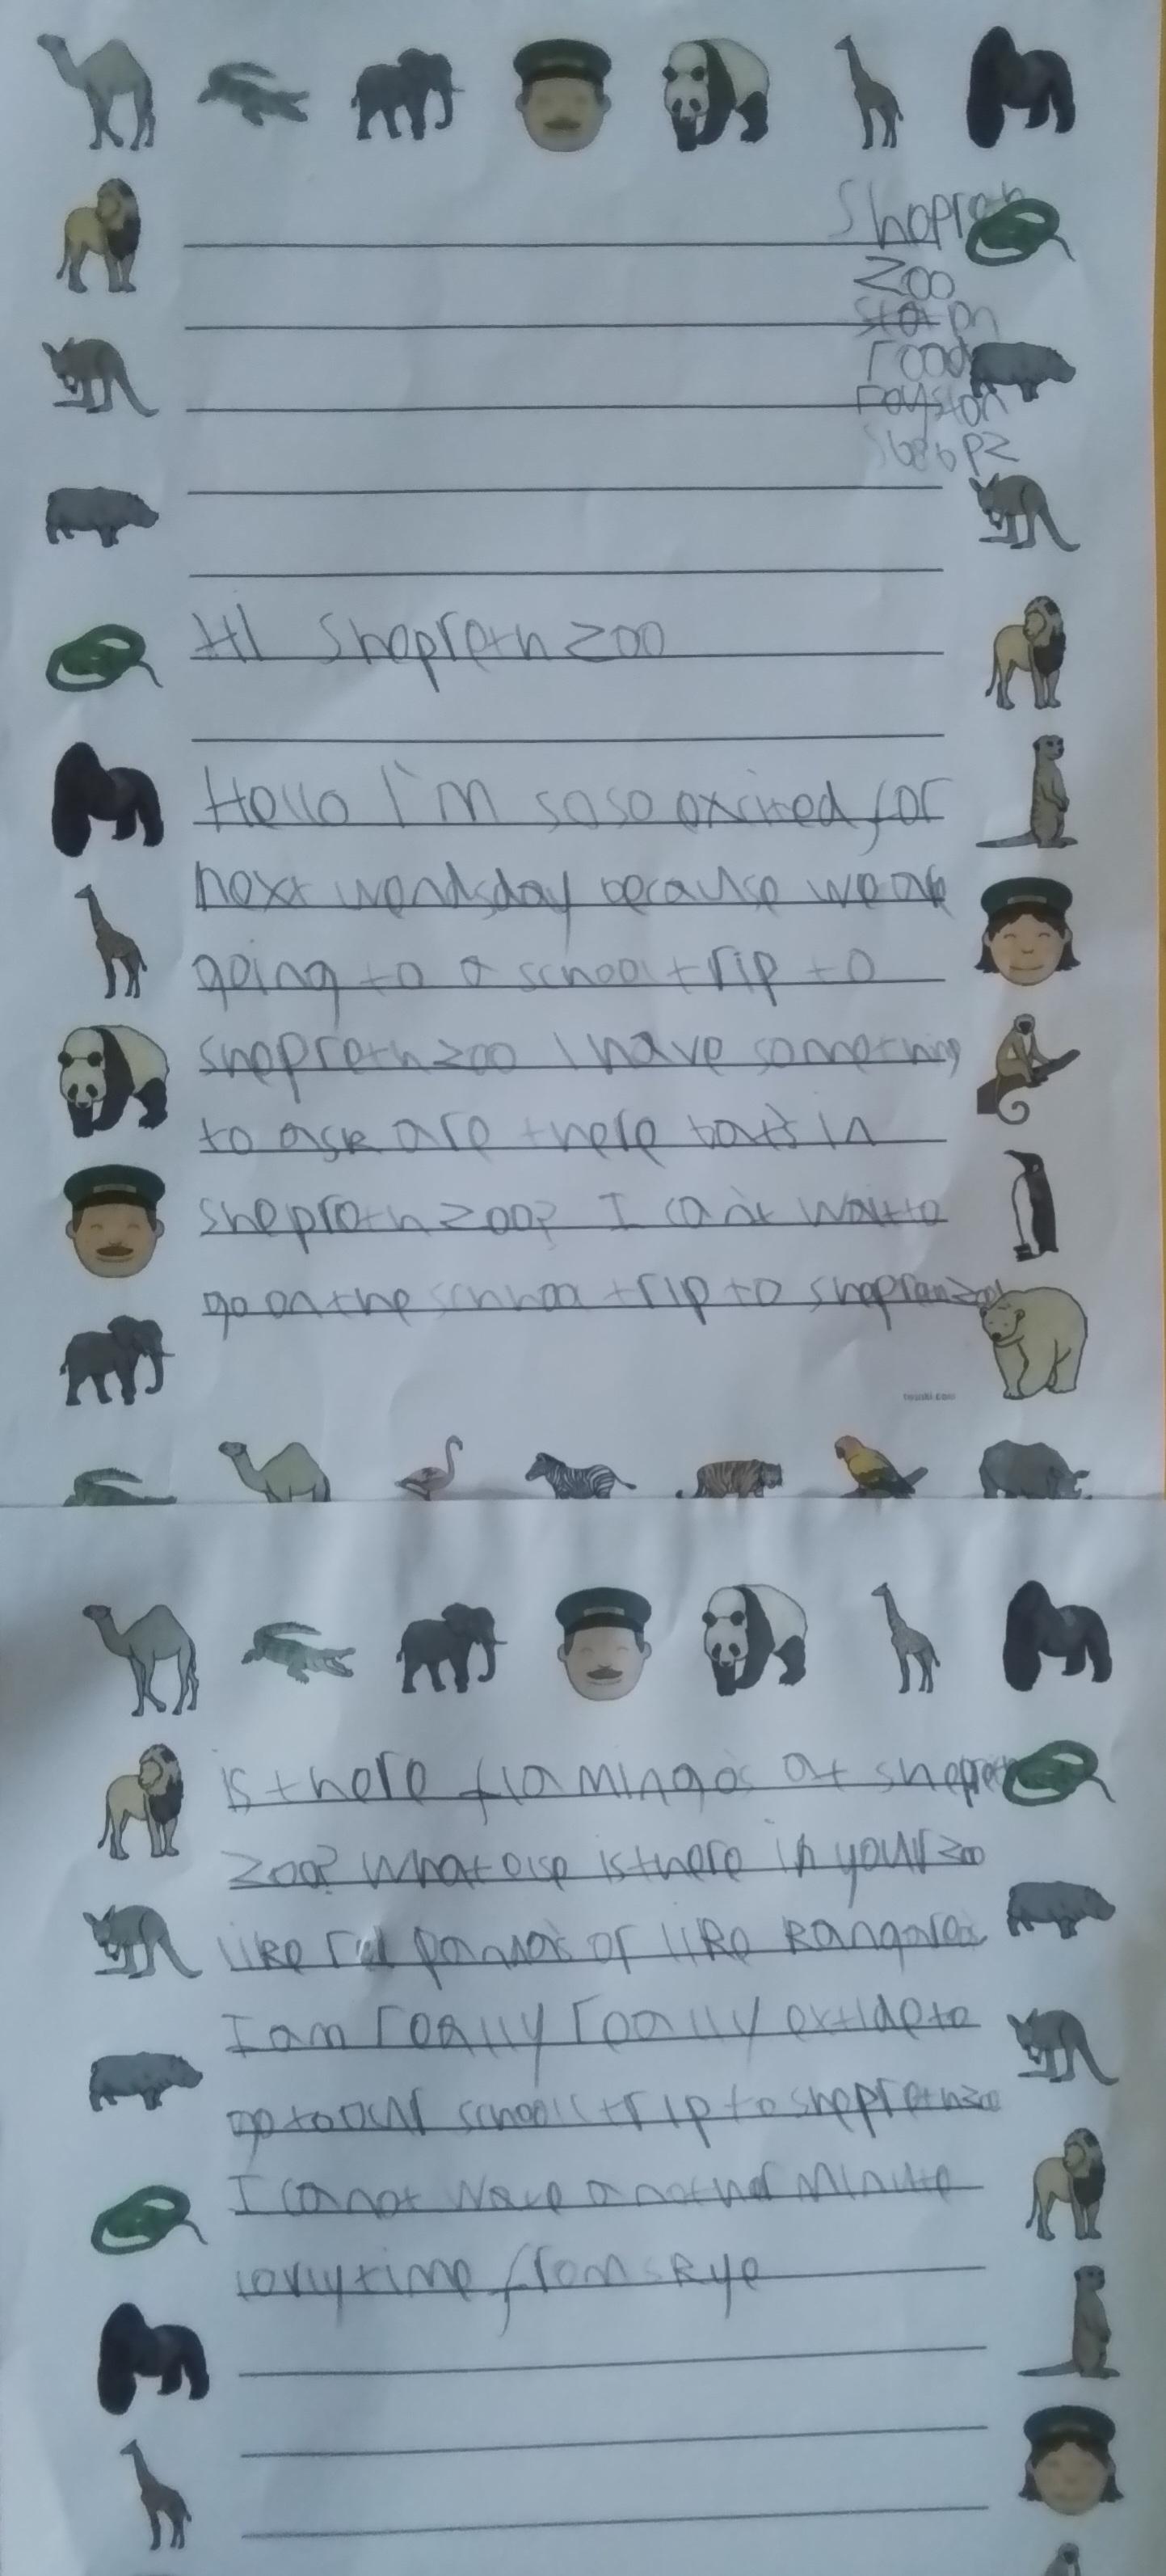 Shepreth
Zoo
station
road
royston
sg86pz
Hi Shepreth zoo
Hello I'm so so exited for
next wendsday because we are
going to a school trip to
shepreth zoo I have something
to ask are there bats in
shepreth zoo? I can't wait to
go on the school trip to shepreth zoo
twinkl.com
is there flamingos at shepreth
zoo? What else is there in your zoo
like red pandas or like kangaroos
I am really really extide to
go to our school trip to shepreth zoo
I cannot wate another minute
time from skye